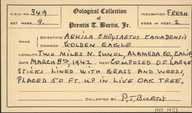 Oological Collection
of
Prentis T. Burtt, Jr.
No. 349
Set Mark 9.
Incubation FRESH
Eggs in Set 2
NAME AQUILA CHRYSAETOS CANADENSIS
GOLDEN EAGLE
LOCALITY TWO MILES N. SUNOL, ALAMEDA CO. CALIF.
DATE MARCH 8TH, 1942 NEST COMPOSED OF LARGE
STICKS LINED WITH GRASS AND WEEDS,
PLACED 50 FT. UP IN LIVE OAK TREE,
COLLECTED BY